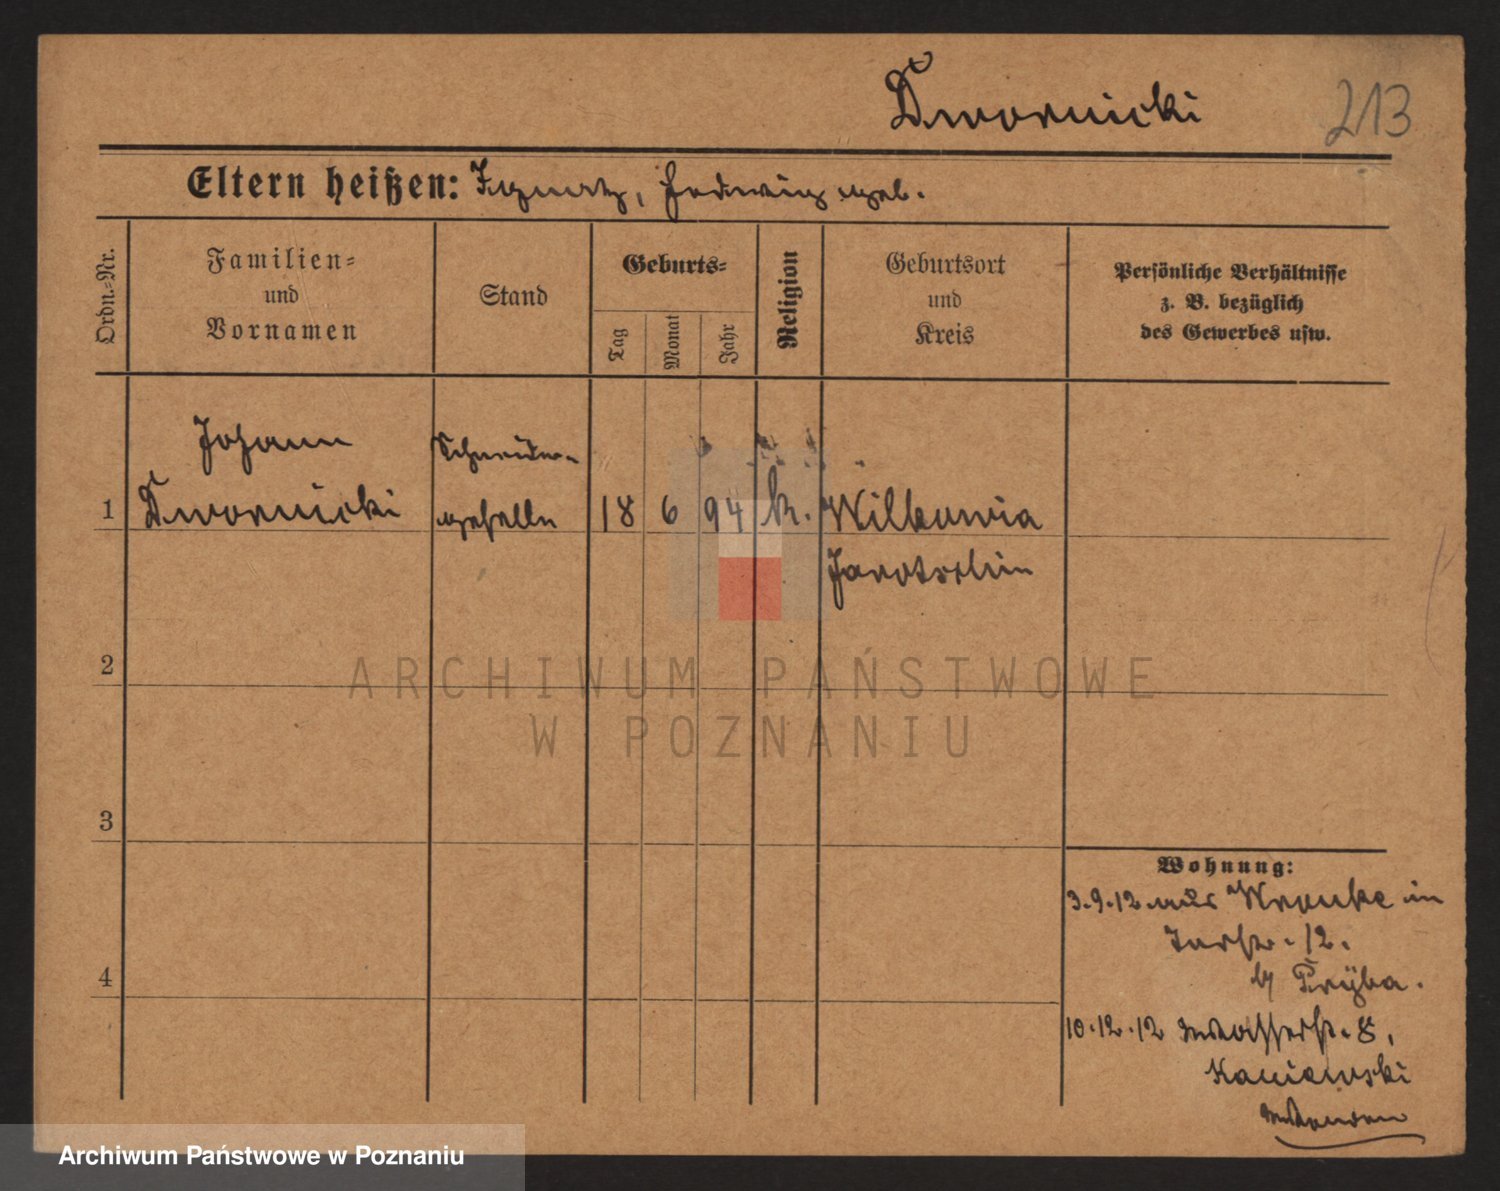 Dwornicki
213
Eltern heißen: Ignatz, Hedwig geb.
Ordn.-Nr.
Familien-
und
Vornamen
Stand
Geburts-
Tag
Monat
Jahr
Religion
Geburtsort
und
Kreis
Persönliche Verhältnisse
z. B. bezüglich
des Gewerbes usw.
Johann
Schneider-
1 Dwornicki geselle 18 6 94 k. Wilkowia
Jarotschin
2
ARCHIWUM PAŃSTWOWE
W POZNANIU
3
Wohnung:
3.9.12 aus Wronke in
12.
4
b/ Pryba.
10.12.12 Wasserstr. 8,
Kaniewski
Archiwum Państwowe w Poznaniu